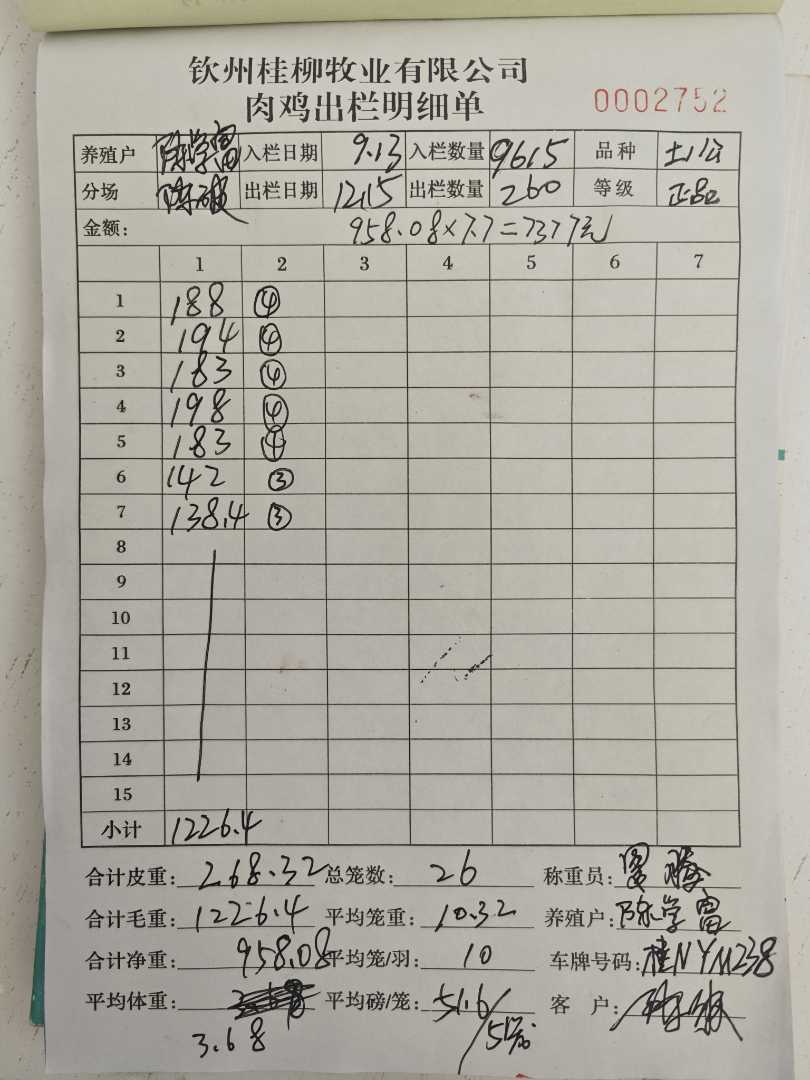 钦州桂柳牧业有限公司
肉鸡出栏明细单 0002752
养殖户 陈学富 入栏日期 9.13 入栏数量 9615 品种 土公
分场 出栏日期 12.15 出栏数量 260 等级 正品
金额: 958.08×7.7=7377元
1 2 3 4 5 6 7
1 188 ④
2 194 ④
3 183 ④
4 198 ④
5 183 ④
6 142 ③
7 138.4 ③
8
9
10
11
12
13
14
15
小计 1226.4
合计皮重: 268.32 总笼数: 26 称重员:
合计毛重: 1226.4 平均笼重: 10.32 养殖户: 陈学富
合计净重: 958.08 平均笼/羽: 10 车牌号码: 桂NYM238
平均体重: 平均磅/笼: 51.6 客 户:
3.68